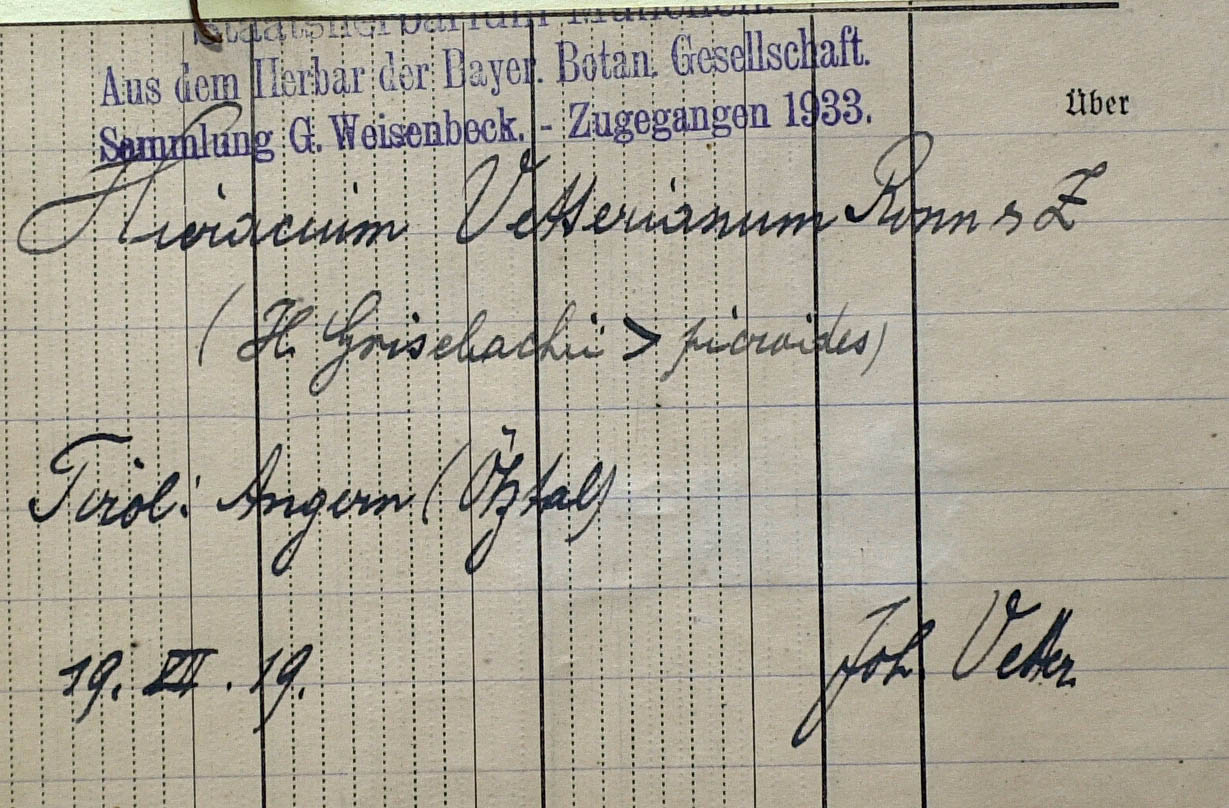 Staatsherbarium München.
Aus dem Herbar der Bayer. Botan. Gesellschaft.
Sammlung G. Weisenbeck. - Zugegangen 1933.
Über
Hieracium Vetterianum Ronn & Z
(H. Grisebachii > picroides)
Tirol: Angern (Ötztal)
19. VII. 19.
Joh. Vetter